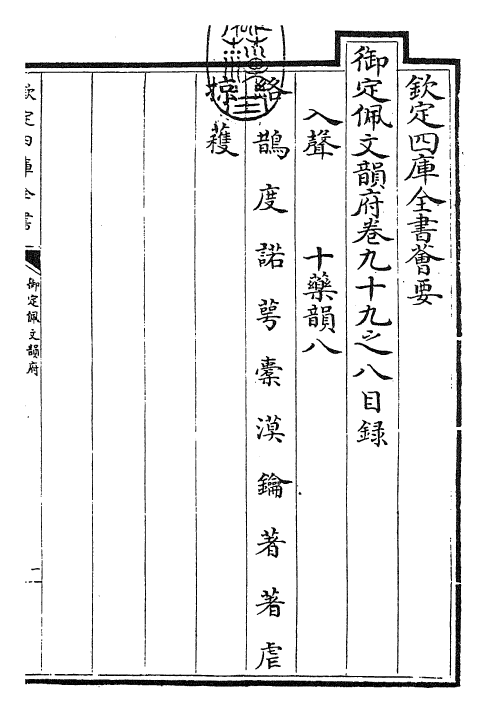 欽定四庫全書薈要
御定佩文韻府卷九十九之八目録
入聲　十藥韻八
絡鵲度諾萼橐漠鑰著著虐
掠蒦
欽定四庫全書
御定佩文韻府
一